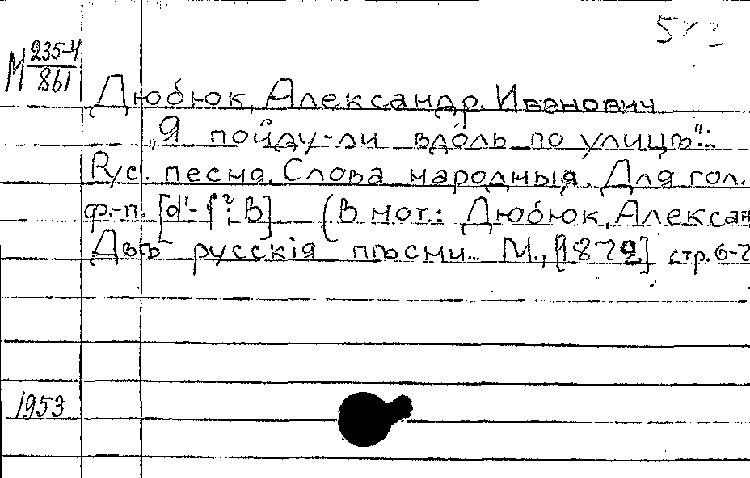 М 235-4
861
Дюбюк, Александр Иванович
„Я пойду-ли вдоль по улицѣ":
Рус. песня. Слова народныя. Для гол.
ф.-п. [d'-f²; B] (В нот.: Дюбюк, Алексан
Двѣ русскія пѣсни. М., [1872] стр. 6-7
1953